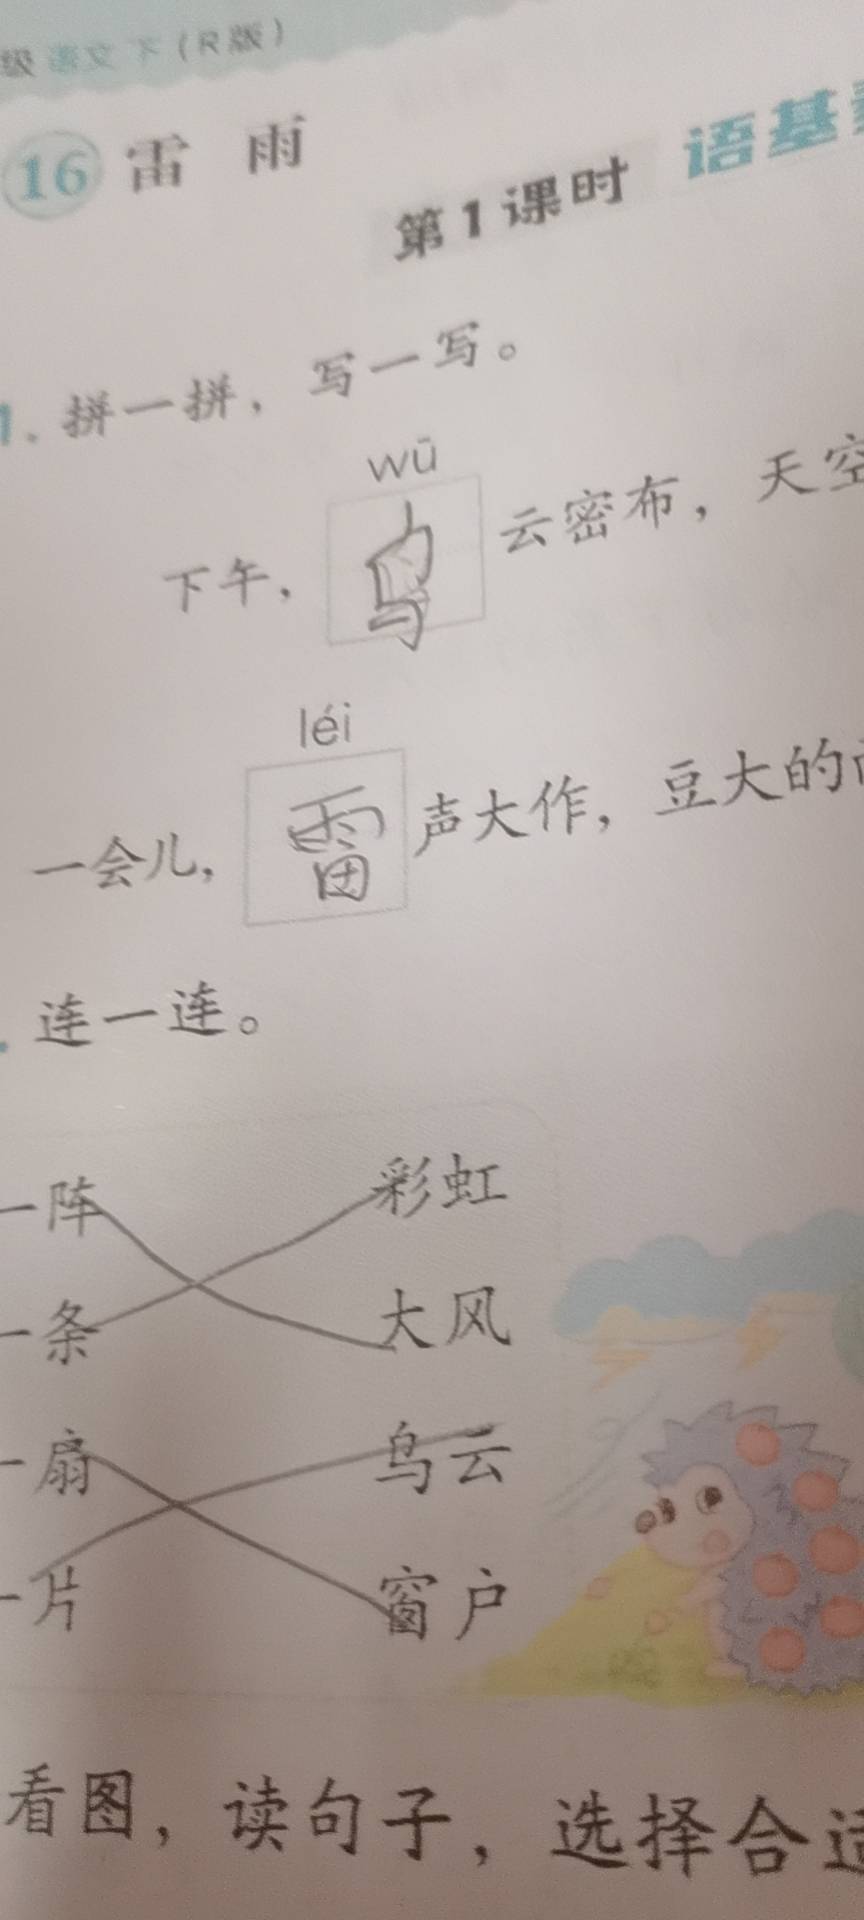 级 语文 下（R版）
16 雷 雨
第1课时 语基
1. 拼一拼，写一写。
wū
下午，乌云密布，天空
léi
一会儿，雷声大作，豆大的
连一连。
一阵 彩虹
一条 大风
一扇 乌云
一片 窗户
看图，读句子，选择合适